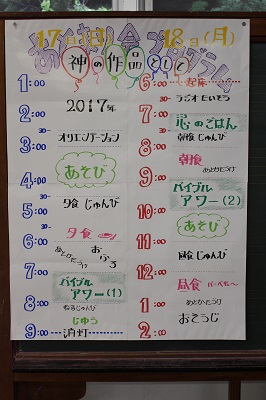 17日(日) 18日(月)
神の作品として
1:00
2:00
2017年
30-
3:00
オリエンテーション
30-
4:00
あそび
5:00
夕食 じゅんび
30-
6:00
夕食
あとかたづけ
おふろ
7:00
8:00
バイブル
アワー(1)
ねるじゅんび
30-
じゆう
9:00
消灯
6:00
起床
30-
ラジオ たいそう
7:00
心のごはん
30-
朝食 じゅんび
8:00
朝食
30-
あとかたづけ
9:00
バイブル
アワー(2)
10:00
11:00
あそび
30-
昼食 じゅんび
12:00
昼食
1:00
あとかたづけ
おそうじ
2:00